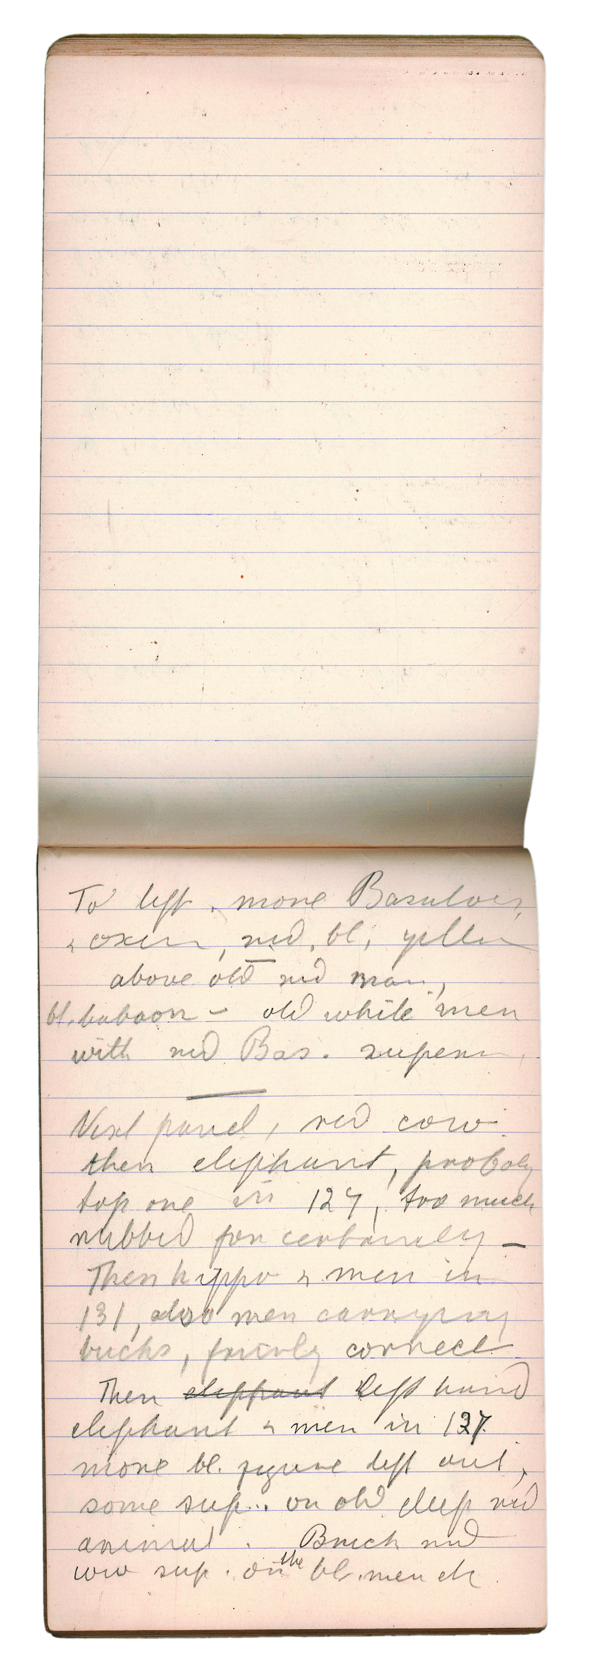 To left, more Basutos,
& oxen, red, bl, yellow
above old red man,
bl. baboon – old white men
with red Bas. superim.
Next panel, red cow
then elephant, probably
top one in 127, too much
rubbed for certainty –
Then hippo & men in
131, also men carrying
bucks, fairly correct
Then elephant left hand
elephant & men in 127.
more bl. figure left out,
some sup... on old deep red
animal. red
cow sup. on the bl. men etc